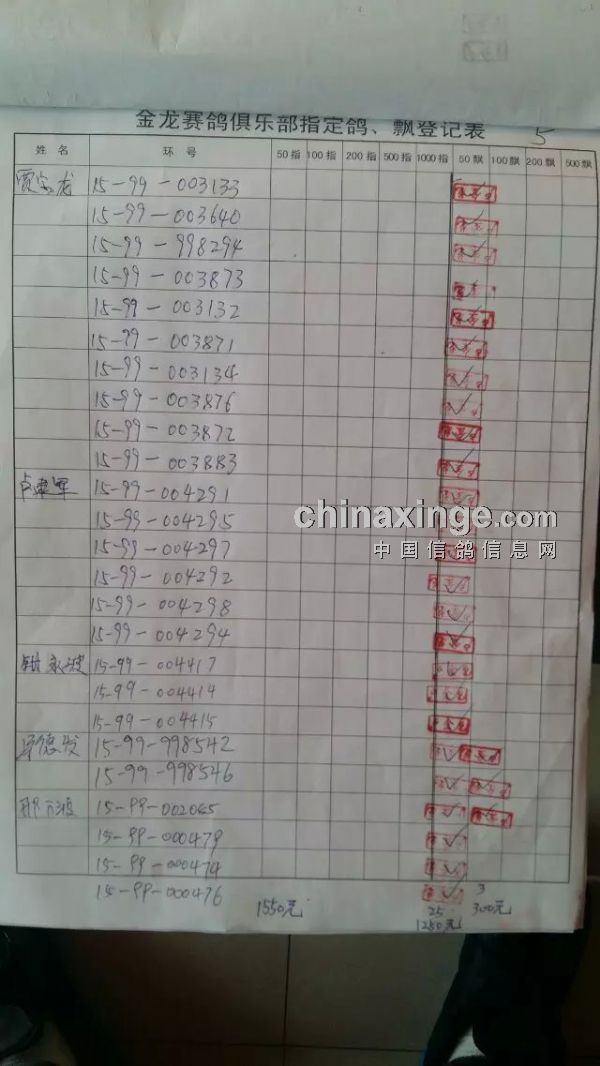 金龙赛鸽俱乐部指定鸽、飘登记表 5
姓名 环号 50指 100指 200指 500指 1000指 50飘 100飘 200飘 500飘
龙 15-99-003133
15-99-003640
15-99-998294
15-99-003873
15-99-003132
15-99-003871
15-99-003134
15-99-003876
15-99-003872
15-99-003883
15-99-004291
15-99-004295
15-99-004297
15-99-004292
15-99-004298
15-99-004294
永波 15-99-004417
15-99-004414
15-99-004415
德发 15-99-998542
15-99-998546
15-99-002065
15-99-000479
15-99-000474
15-99-000476
1550元 25 3
1250元 300元
chinaxinge.com
中国信鸽信息网